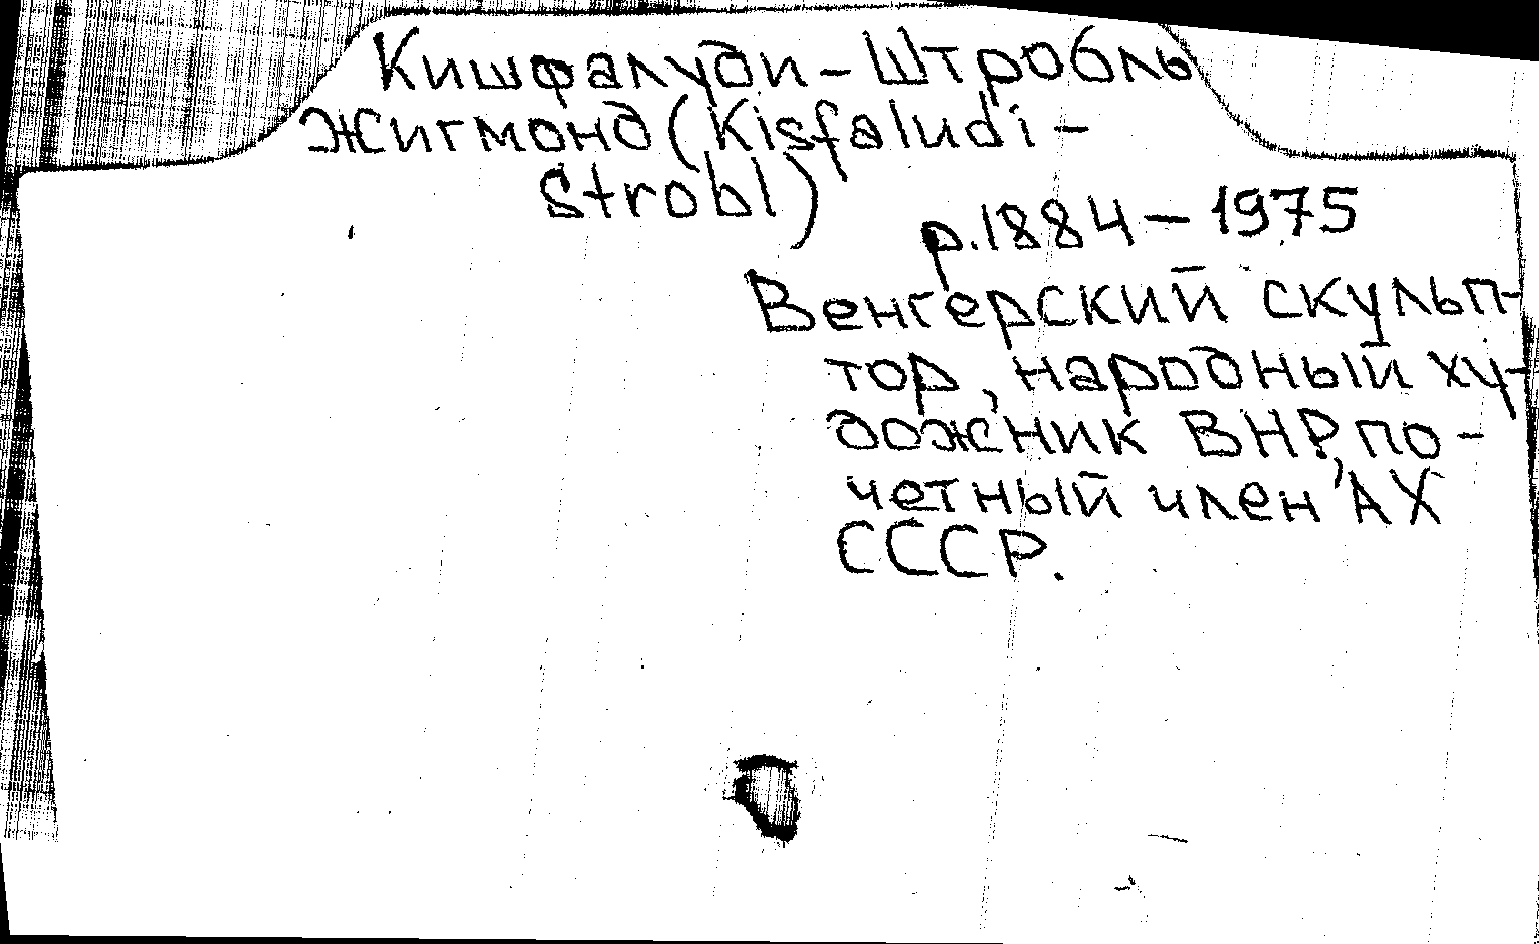 Кишфалуди - Штробль
Жигмонд (Kisfaludi -
Strobl)
р. 1884 - 1975
Венгерский скульп-
тор, народный ху-
дожник ВНР, по -
четный член АХ
СССР.